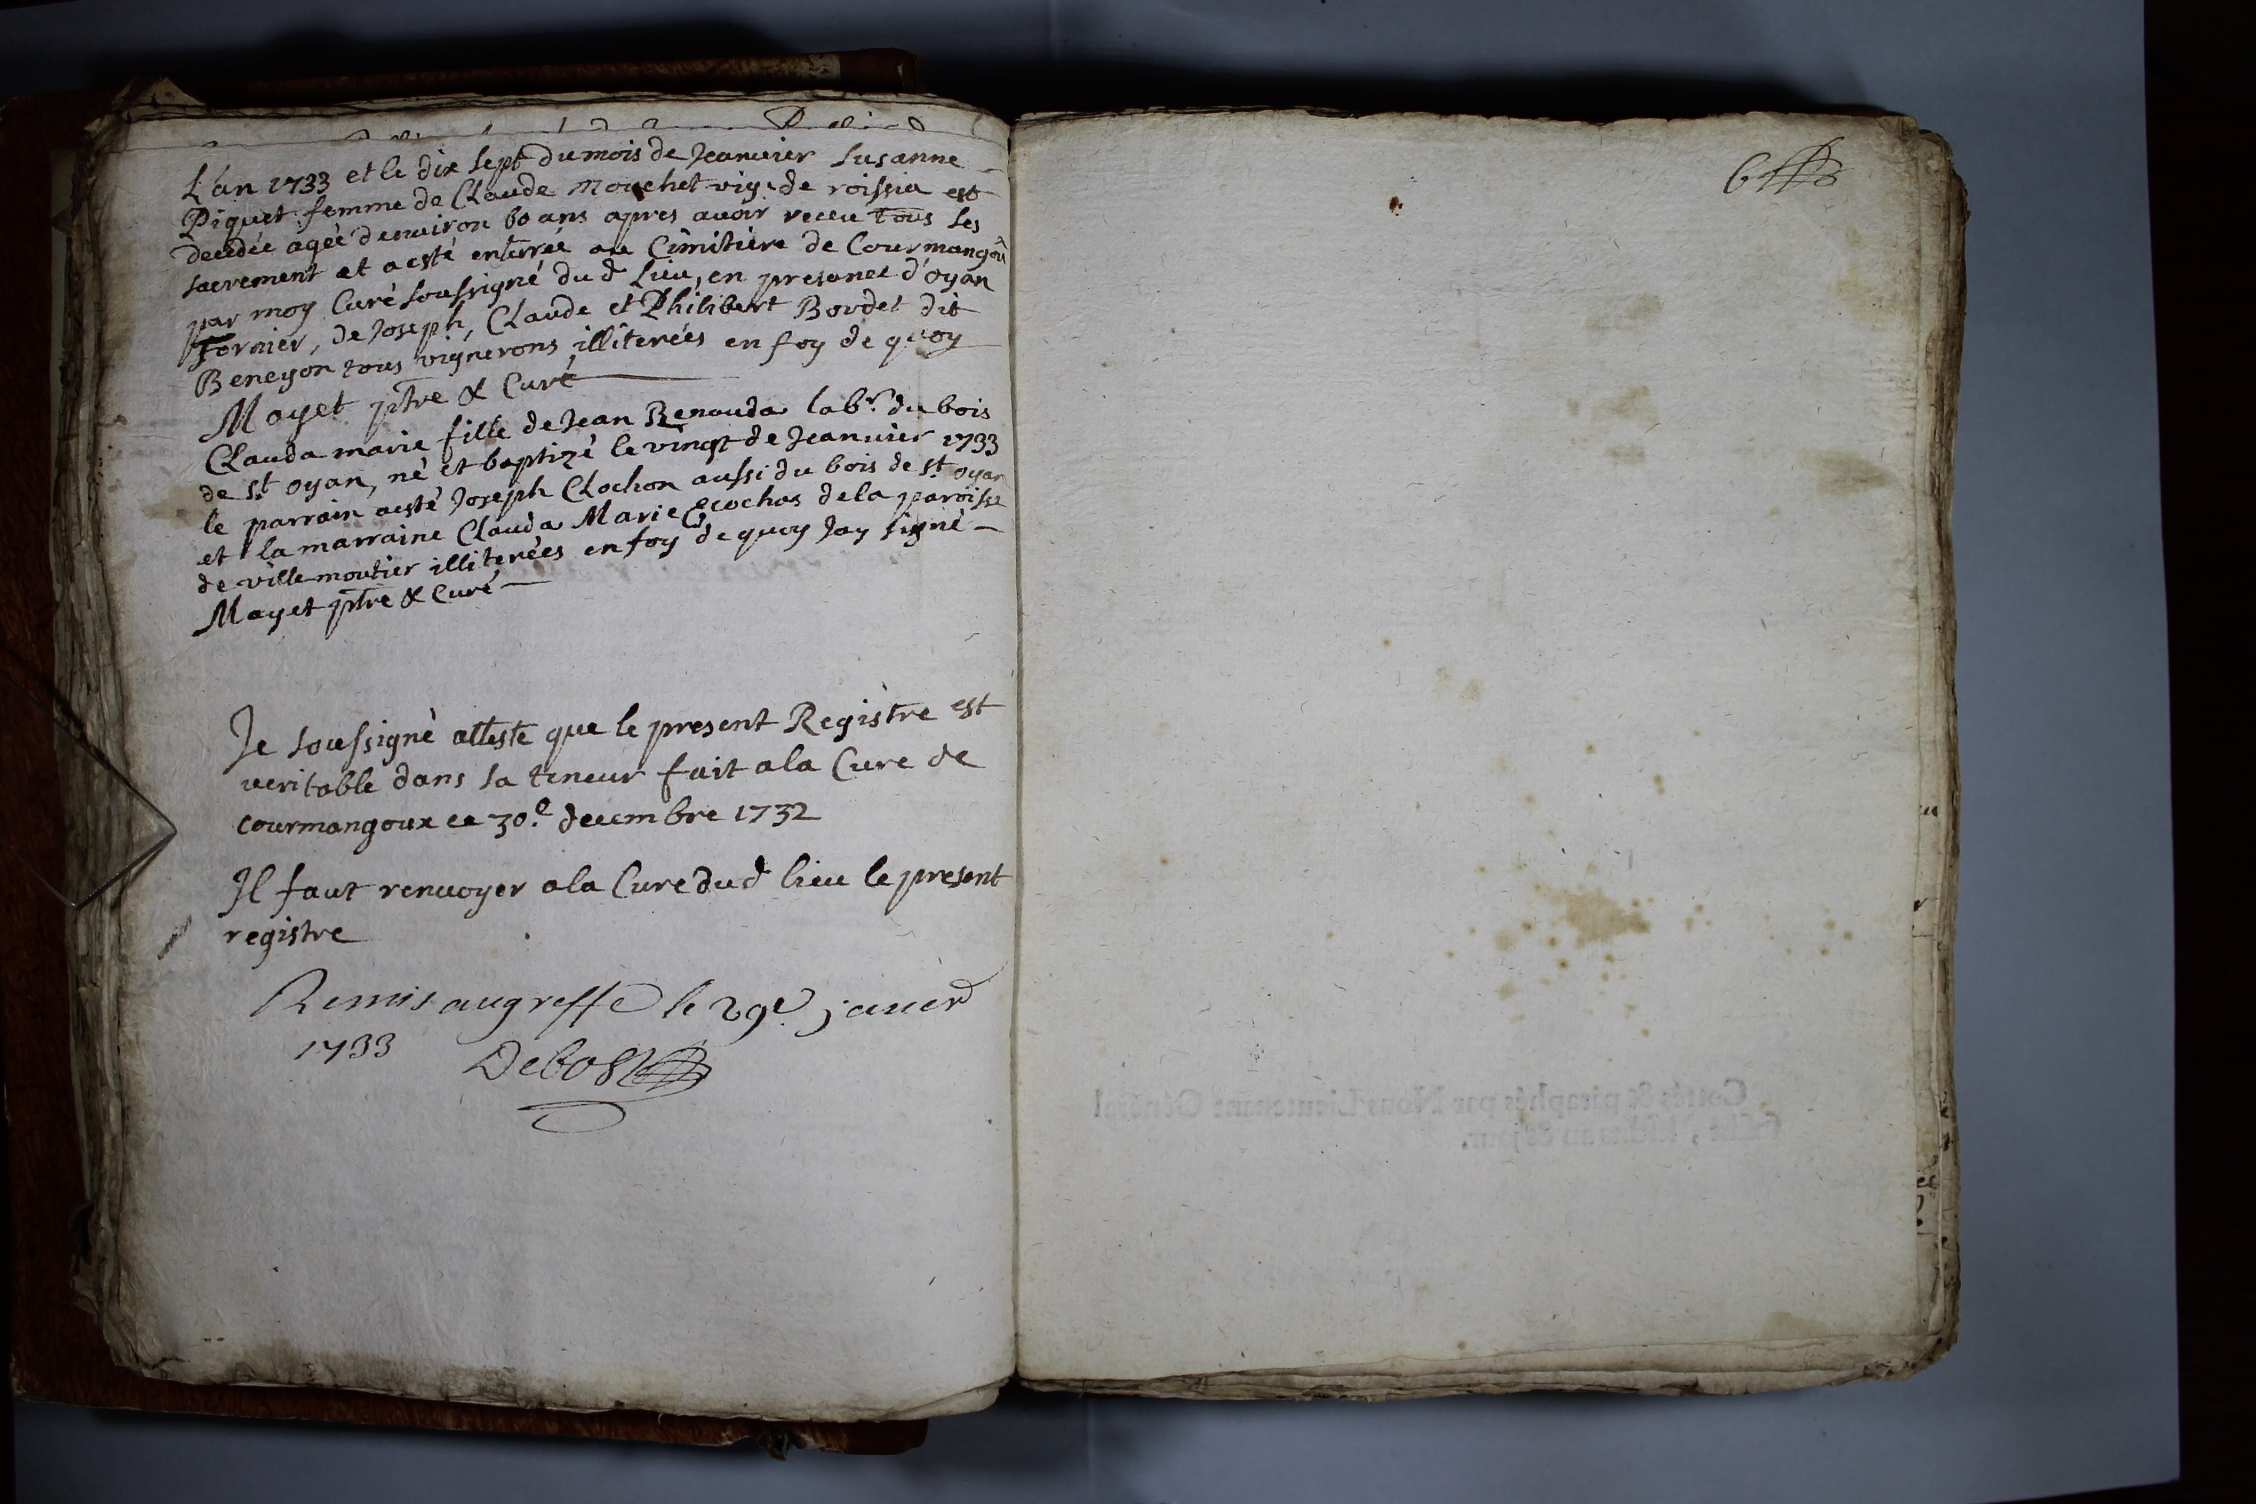 L'an 1733 et le dix sept du mois de Jeanvier Susanne
Piquet femme de Claude Mouchet vig: de roissia est
decedée agée d'environ 60 ans apres avoir receu tous les
sacrement et a esté enterrée au Cimitiere de Courmangoû
par moy Curé soussigné dud lieu, en presance d'oyan
Fornier, de Joseph, Claude et Philibert Bordet dit
Beneyon tous vignerons illiterées en foy de quoy
Mayet ptre & Curé
Clauda marie fille de Jean Renauda labr. du bois
de St oyan, né et baptizé le vingt de Jeanvier 1733
le parrain a esté Joseph Clochon aussi du bois de St oyan
et la marraine Clauda Marie Ecochas de la paroisse
de villemoutier illiterées en foy de quoy Jay signé
Mayet ptre & Curé
Je soussigné atteste que le present Registre est
veritable dans sa teneur fait a la Cure de
courmangoux ce 30e decembre 1732
Il faut renvoyer a la Cure dud lieu le present
registre
Remis au greffe le 29e janer
1733 Debost
6
Cottés & paraphés par Nous Lieutenant Général